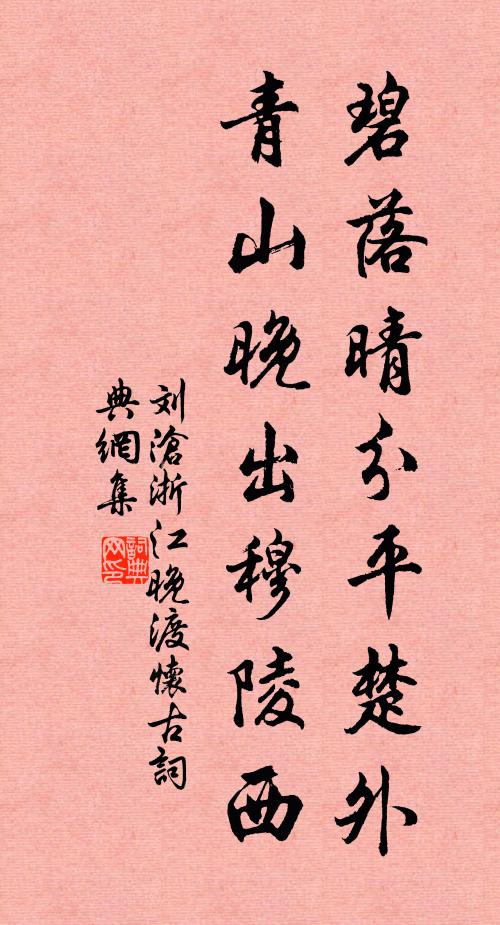 碧落晴分平楚外
青山晚出穆陵西
刘滄浙江晚渡懷古詞
典網集
詞典
网印